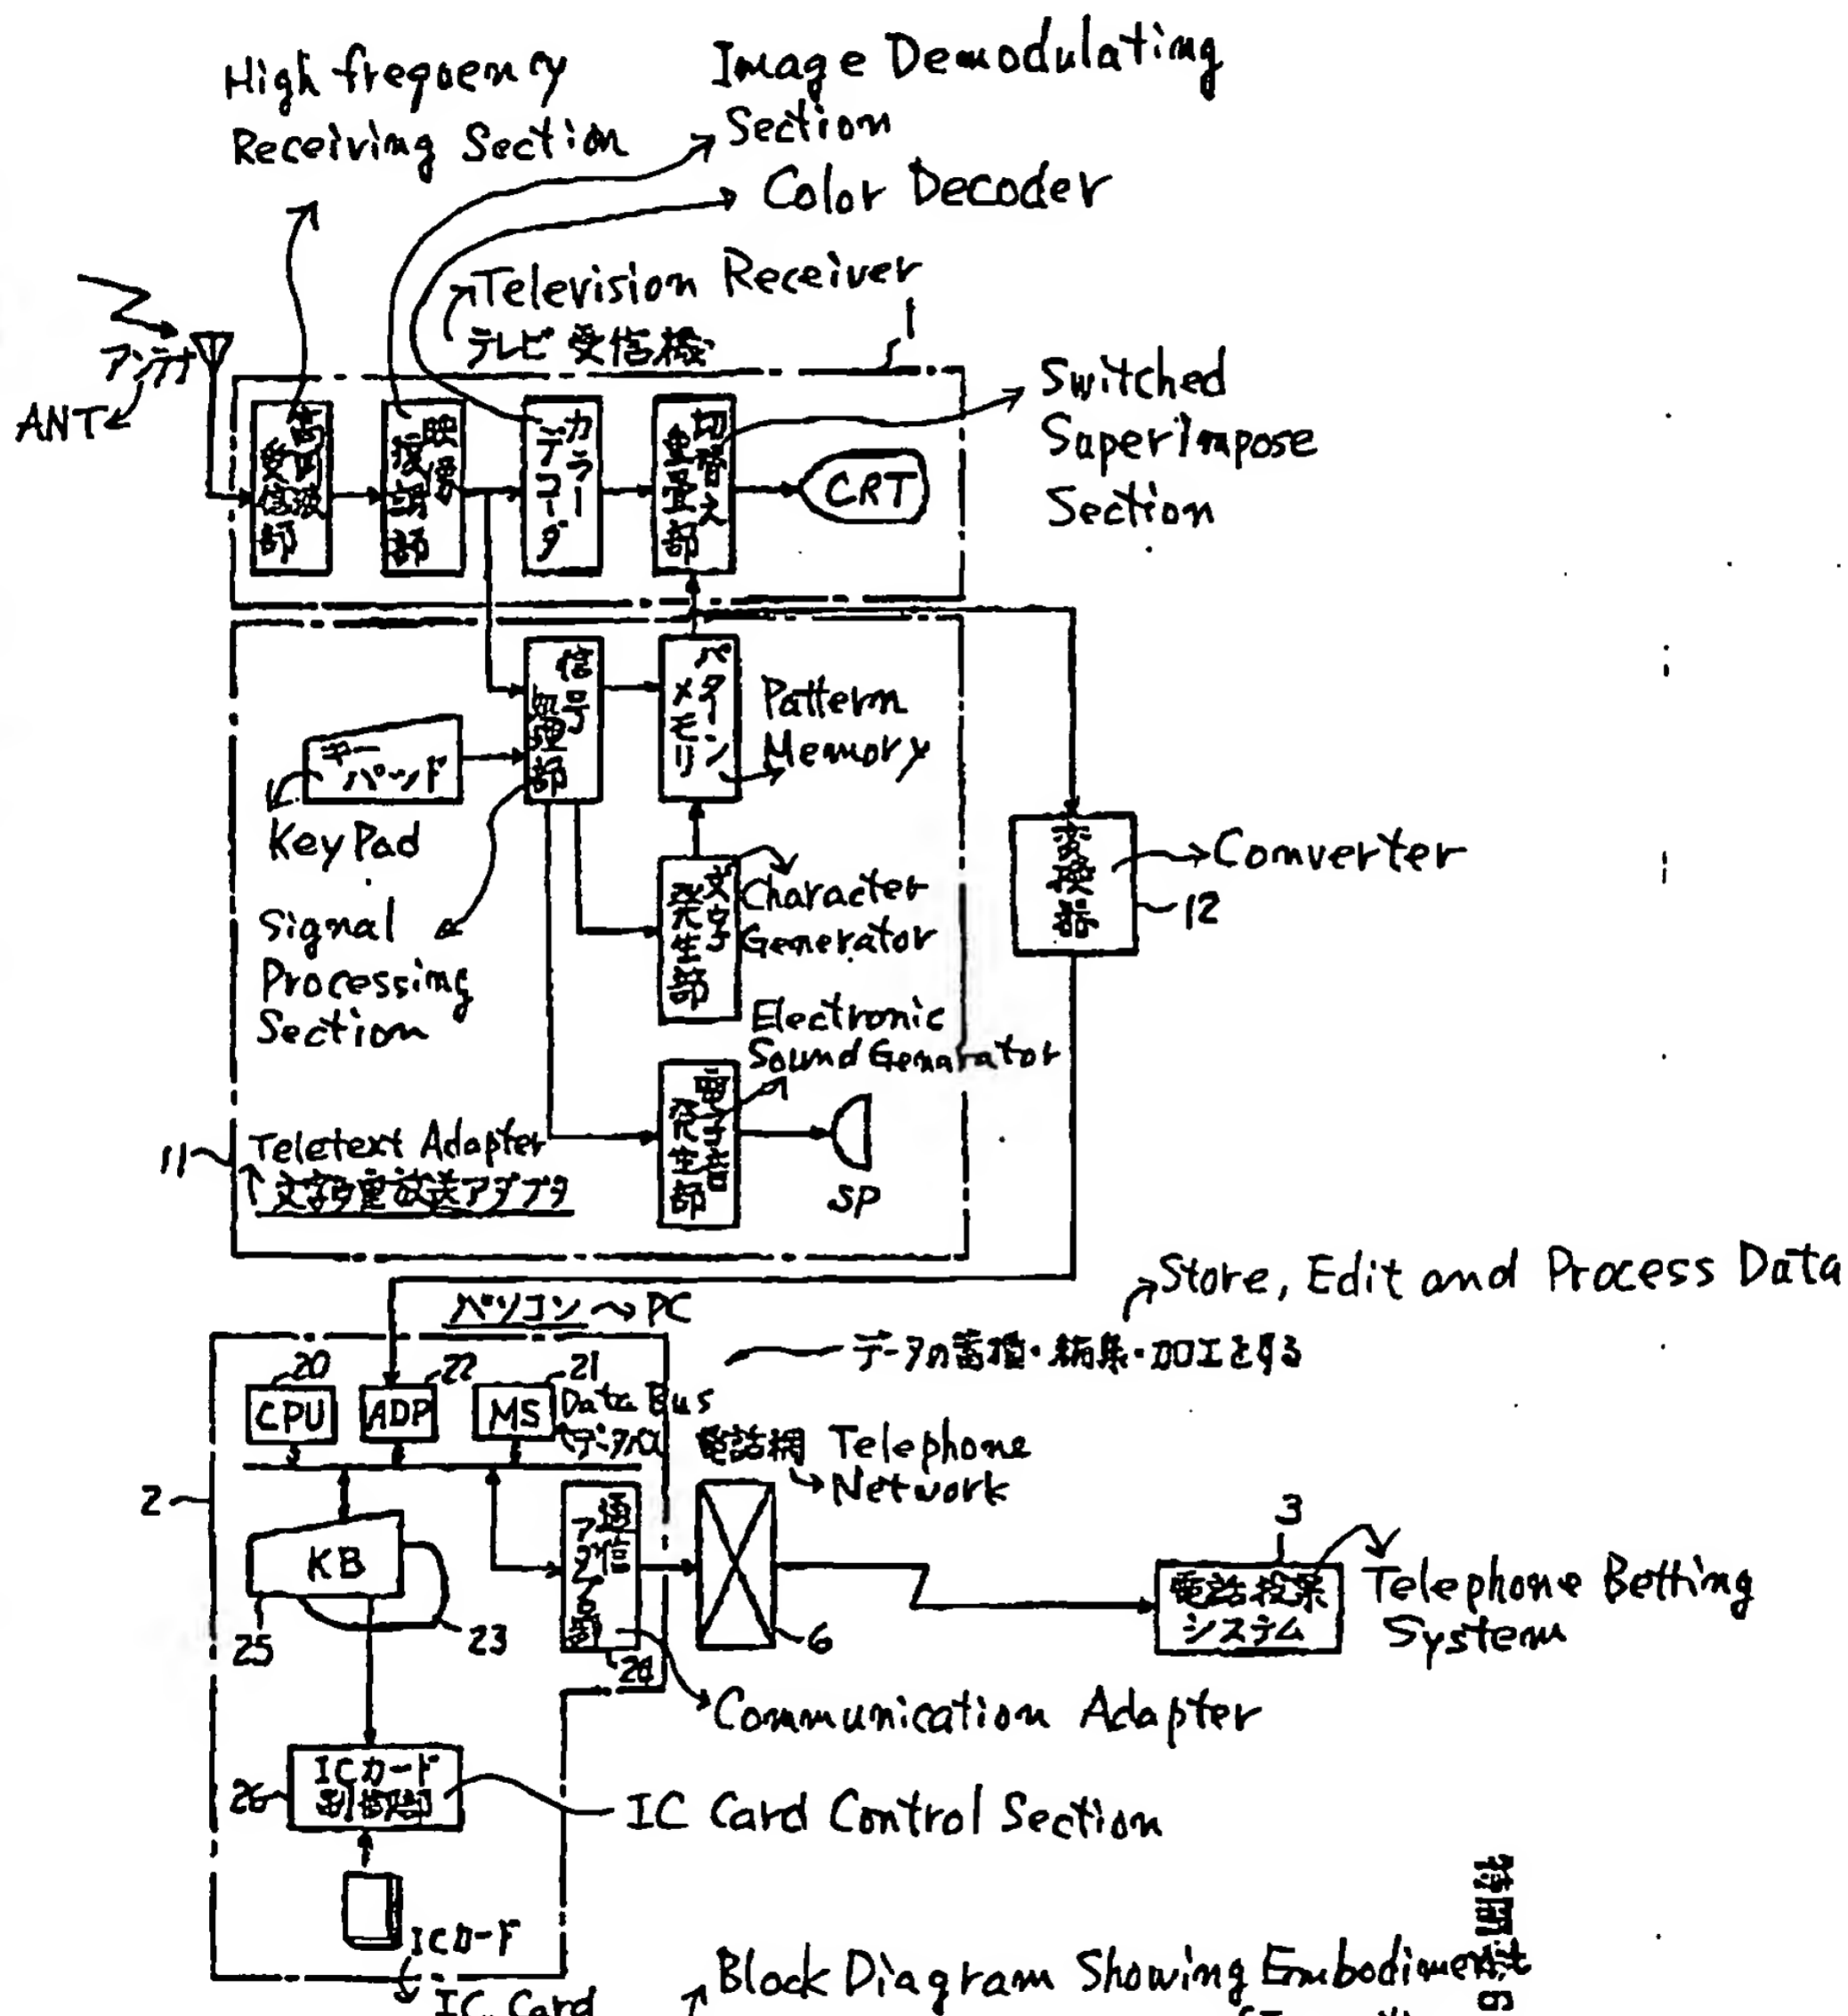 High frequency
Receiving Section
Image Demodulating
Section
Color Decoder
Television Receiver
テレビ受信機
1
アンテナ
ANT
高周波
受信部
映像
復調部
カラー
デコーダ
切替え
重畳部
CRT
Switched
Superimpose
Section
信号
処理部
パターン
メモリ
Pattern
Memory
キー
パッド
KeyPad
Signal
Processing
Section
文字
発生部
Character
Generator
変換器
Comverter
12
Electronic
Sound Genarator
電子音
発生部
SP
11
Teletext Adapter
文字多重放送アダプタ
Store, Edit and Process Data
パソコン PC
データの蓄積・編集・加工をする
20
CPU
22
ADP
21
MS
Data Bus
データバス
電話網 Telephone
Network
2
KB
25
23
通信
アダプタ
24
6
3
電話投票
システム
Telephone Betting
System
Communication Adapter
26
ICカード
制御部
IC Card Control Section
ICカード
IC Card
Block Diagram Showing Embodiment